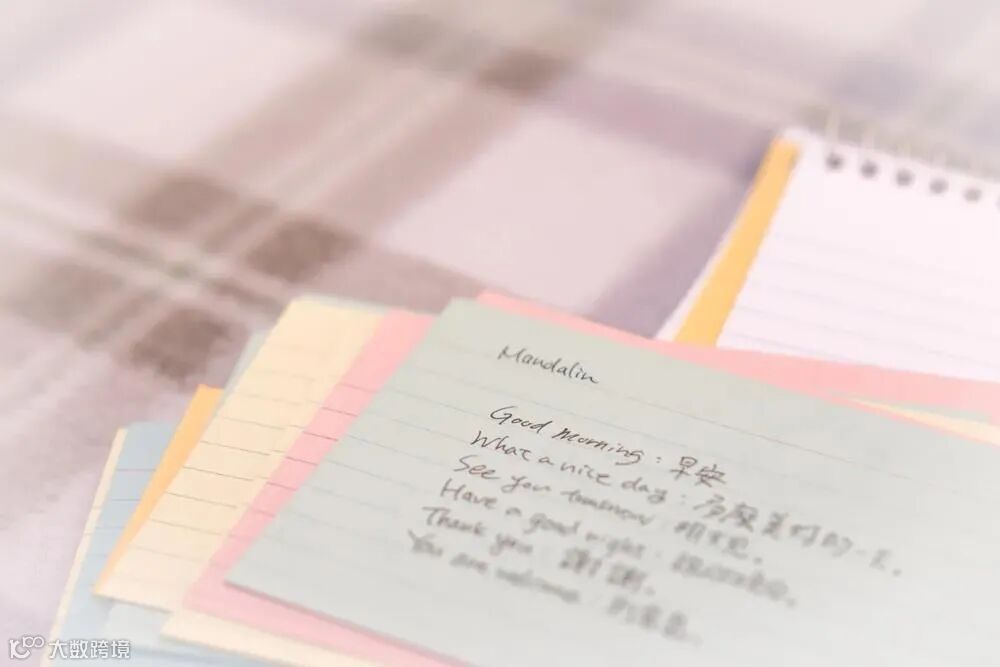 Mandalin
Good morning : 早安
What a nice day : 多麼美好的一天。
See you tomorrow : 明天見。
Have a good night :
Thank you : 謝謝。
You are welcome :
大数跨境